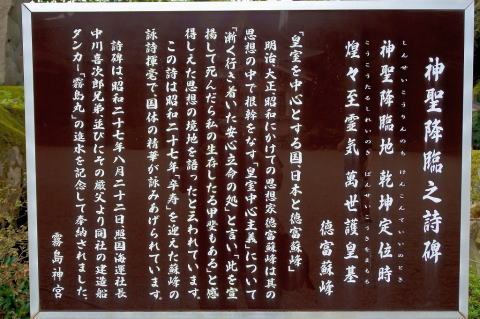 神聖降臨之詩碑
しんせいこうりんのち けんこんていいのとき
神聖降臨地 乾坤定位時
こうこうたるしれいのき ばんせいこうきをまもる
煌々至霊気 萬世護皇基
徳富蘇峰
「皇室を中心とする国、日本と徳富蘇峰」
明治、大正、昭和にかけての思想家徳富蘇峰は其の
思想の中で根幹をなす、皇室中心主義」について
「漸く行き着いた安心立命の処」と言い「此を宣
揚して死んだら私の生存したる甲斐もある」と感
得しえた思想の境地を語ったと云われています。
この詩は昭和二十七年「卒寿」を迎えた蘇峰の
詠詩揮毫で国体の精華が詠みあげられています。
詩碑は、昭和二十七年八月二十二日照国海運社長
中川喜次郎兄弟、並びにその厳父より同社の建造船
タンカー「霧島丸」の進水を記念して奉納されました。
霧島神宮